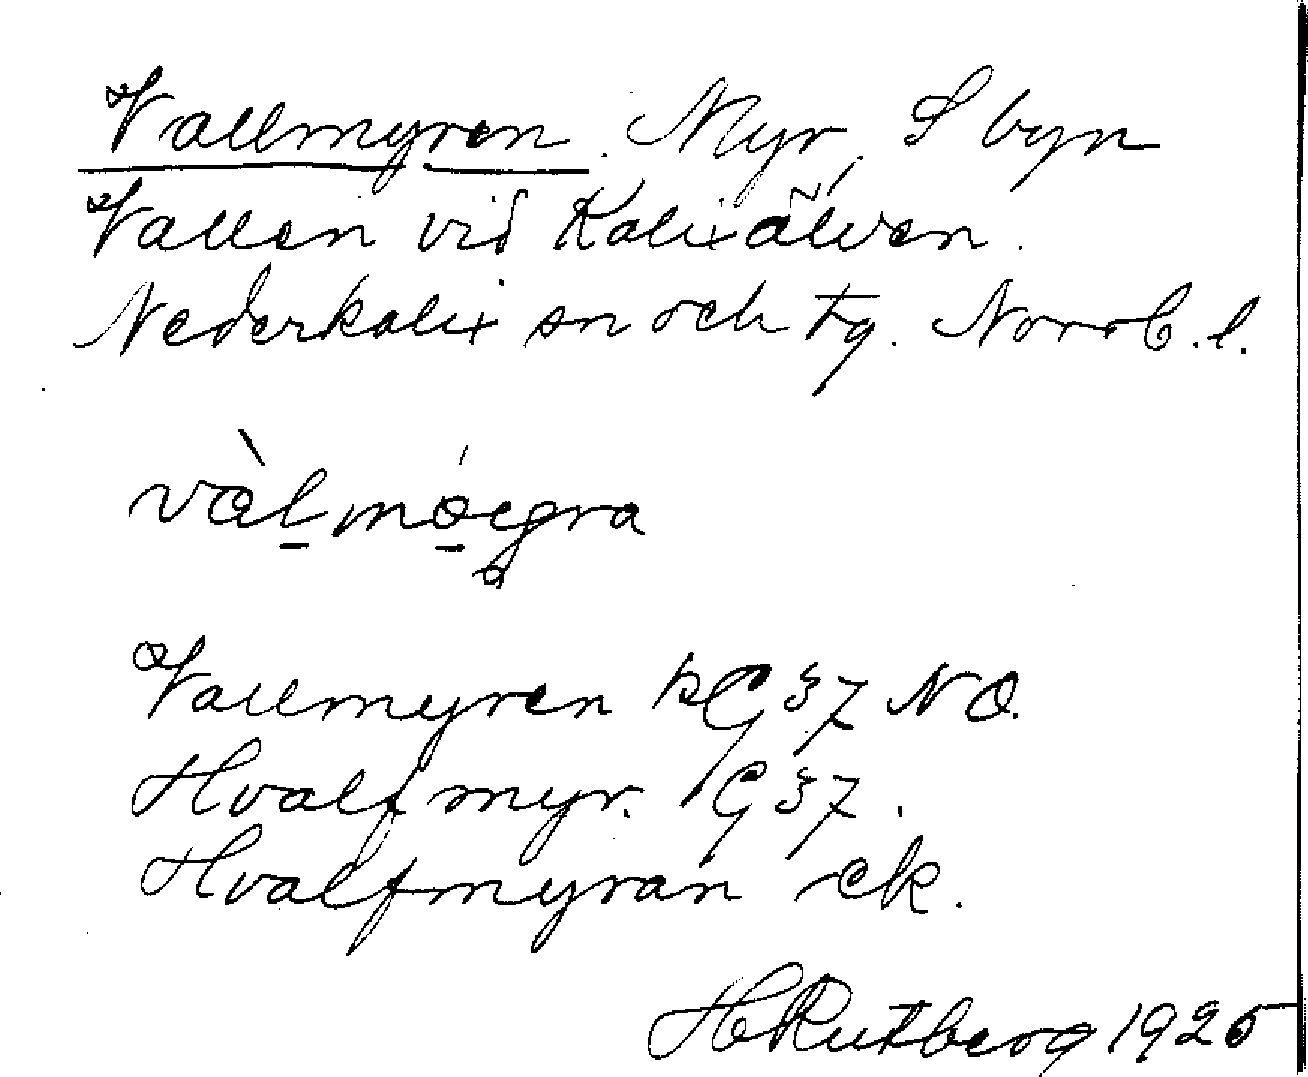 Vallmyren. Myr, S byn
Vallen vid Kalixälven.
Nederkalix sn och tg. Norrb. l.
vàl̠mó̠egra
Vallmyren kG 37 NO.
Hvalfmyr. G 37.
Hvalfmyran ek.
H Rutberg 1925